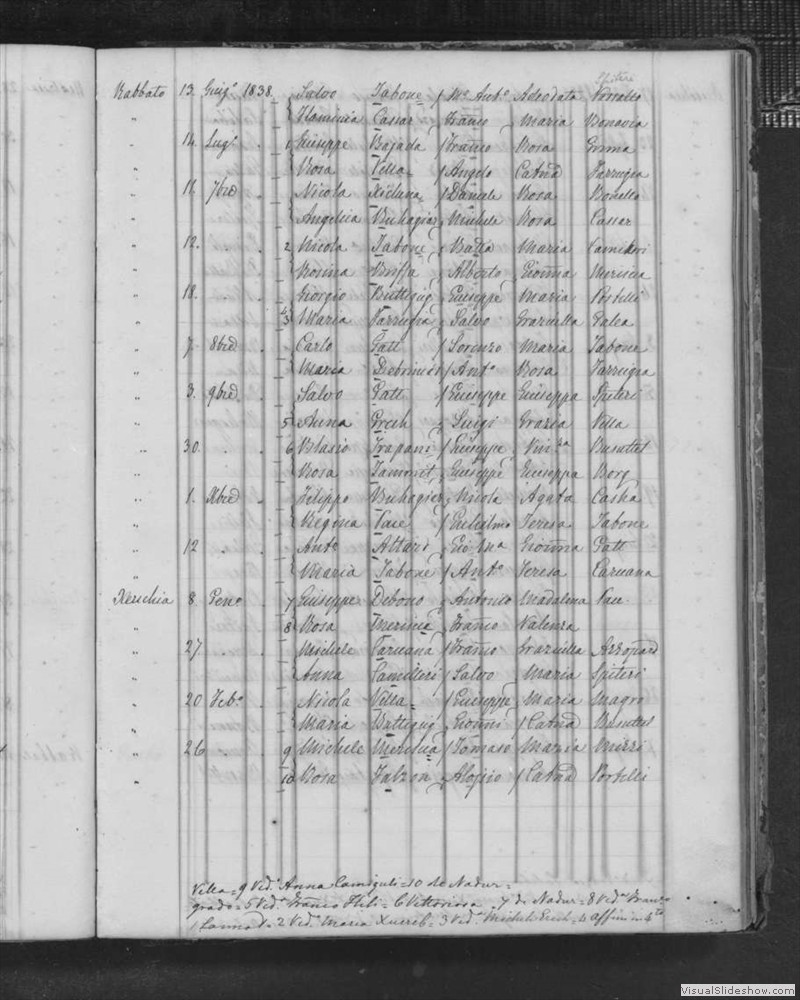 Spiteri
Rabbato 13. Giug.º 1838. Salvo Tabone Mº Antº Adeodata Portelli
" Flaminia Cassar Franco Maria Bonavia
" 14. Lug.º 1 Giuseppe Bajada Franco Rosa Grima
" Rosa Vella Angelo Catnd Farrugia
" 11. 7bre Nicola Xiclunа Daniele Rosa Bonello
" Angelica Buhagiar Michele Rosa Cassar
" 12. 2 Nicola Tabone Batta Maria Camilleri
" Rosina Buffa Alberto Gionna Mercieca
" 18. Giorgio Buttigieg Giuseppe Maria Portelli
" Maria Farrugia Salvo Graziella Galea
" 7. 8bre Carlo Gatt Lorenzo Maria Tabone
" Maria Antº Rosa Farrugia
" 3. 9bre Salvo Gatt Giuseppe Giuseppa Spiteri
" 5 Anna Grech Luigi Grazia Vella
" 30. 6 Blasio Trapani Giuseppe Busuttil
" Rosa Giuseppe Giuseppa Borg
" 1. Xbre Filippo Buhagiar Nicola Agata Casha
" Regina Pace Gulielmo Teresa Tabone
" 12 Antº Attard Gionna Gatt
" Maria Tabone Antº Teresa Caruana
Xeuchia 8 Genº 7 Giuseppe Debono Antonio Madalena Pace
" 8 Rosa Mercieca Franco Valenza
" 27 Michele Caruana Franco Graziella
" Anna Camilleri Salvo Maria Spiteri
" 20 Febº Nicola Vella Giuseppe Maria Magro
" Maria Buttigieg Gionni Catnd Busuttil
" 26 9 Michele Mercieca Tomaso Maria Mizzi
" 10 Rosa Falzon Alojsio Catnd Portelli
Vella = 9 Vedª Anna = 10 de Nadur =
grado = 5 Vedº Franco = 6 Vittoriosa = 7 de Nadur = 8 Vedª Franco
= 2 Vedº Maria Xuereb = 3 Vedª Michele = 4 Affini in 4to
VisualSlideshow.com